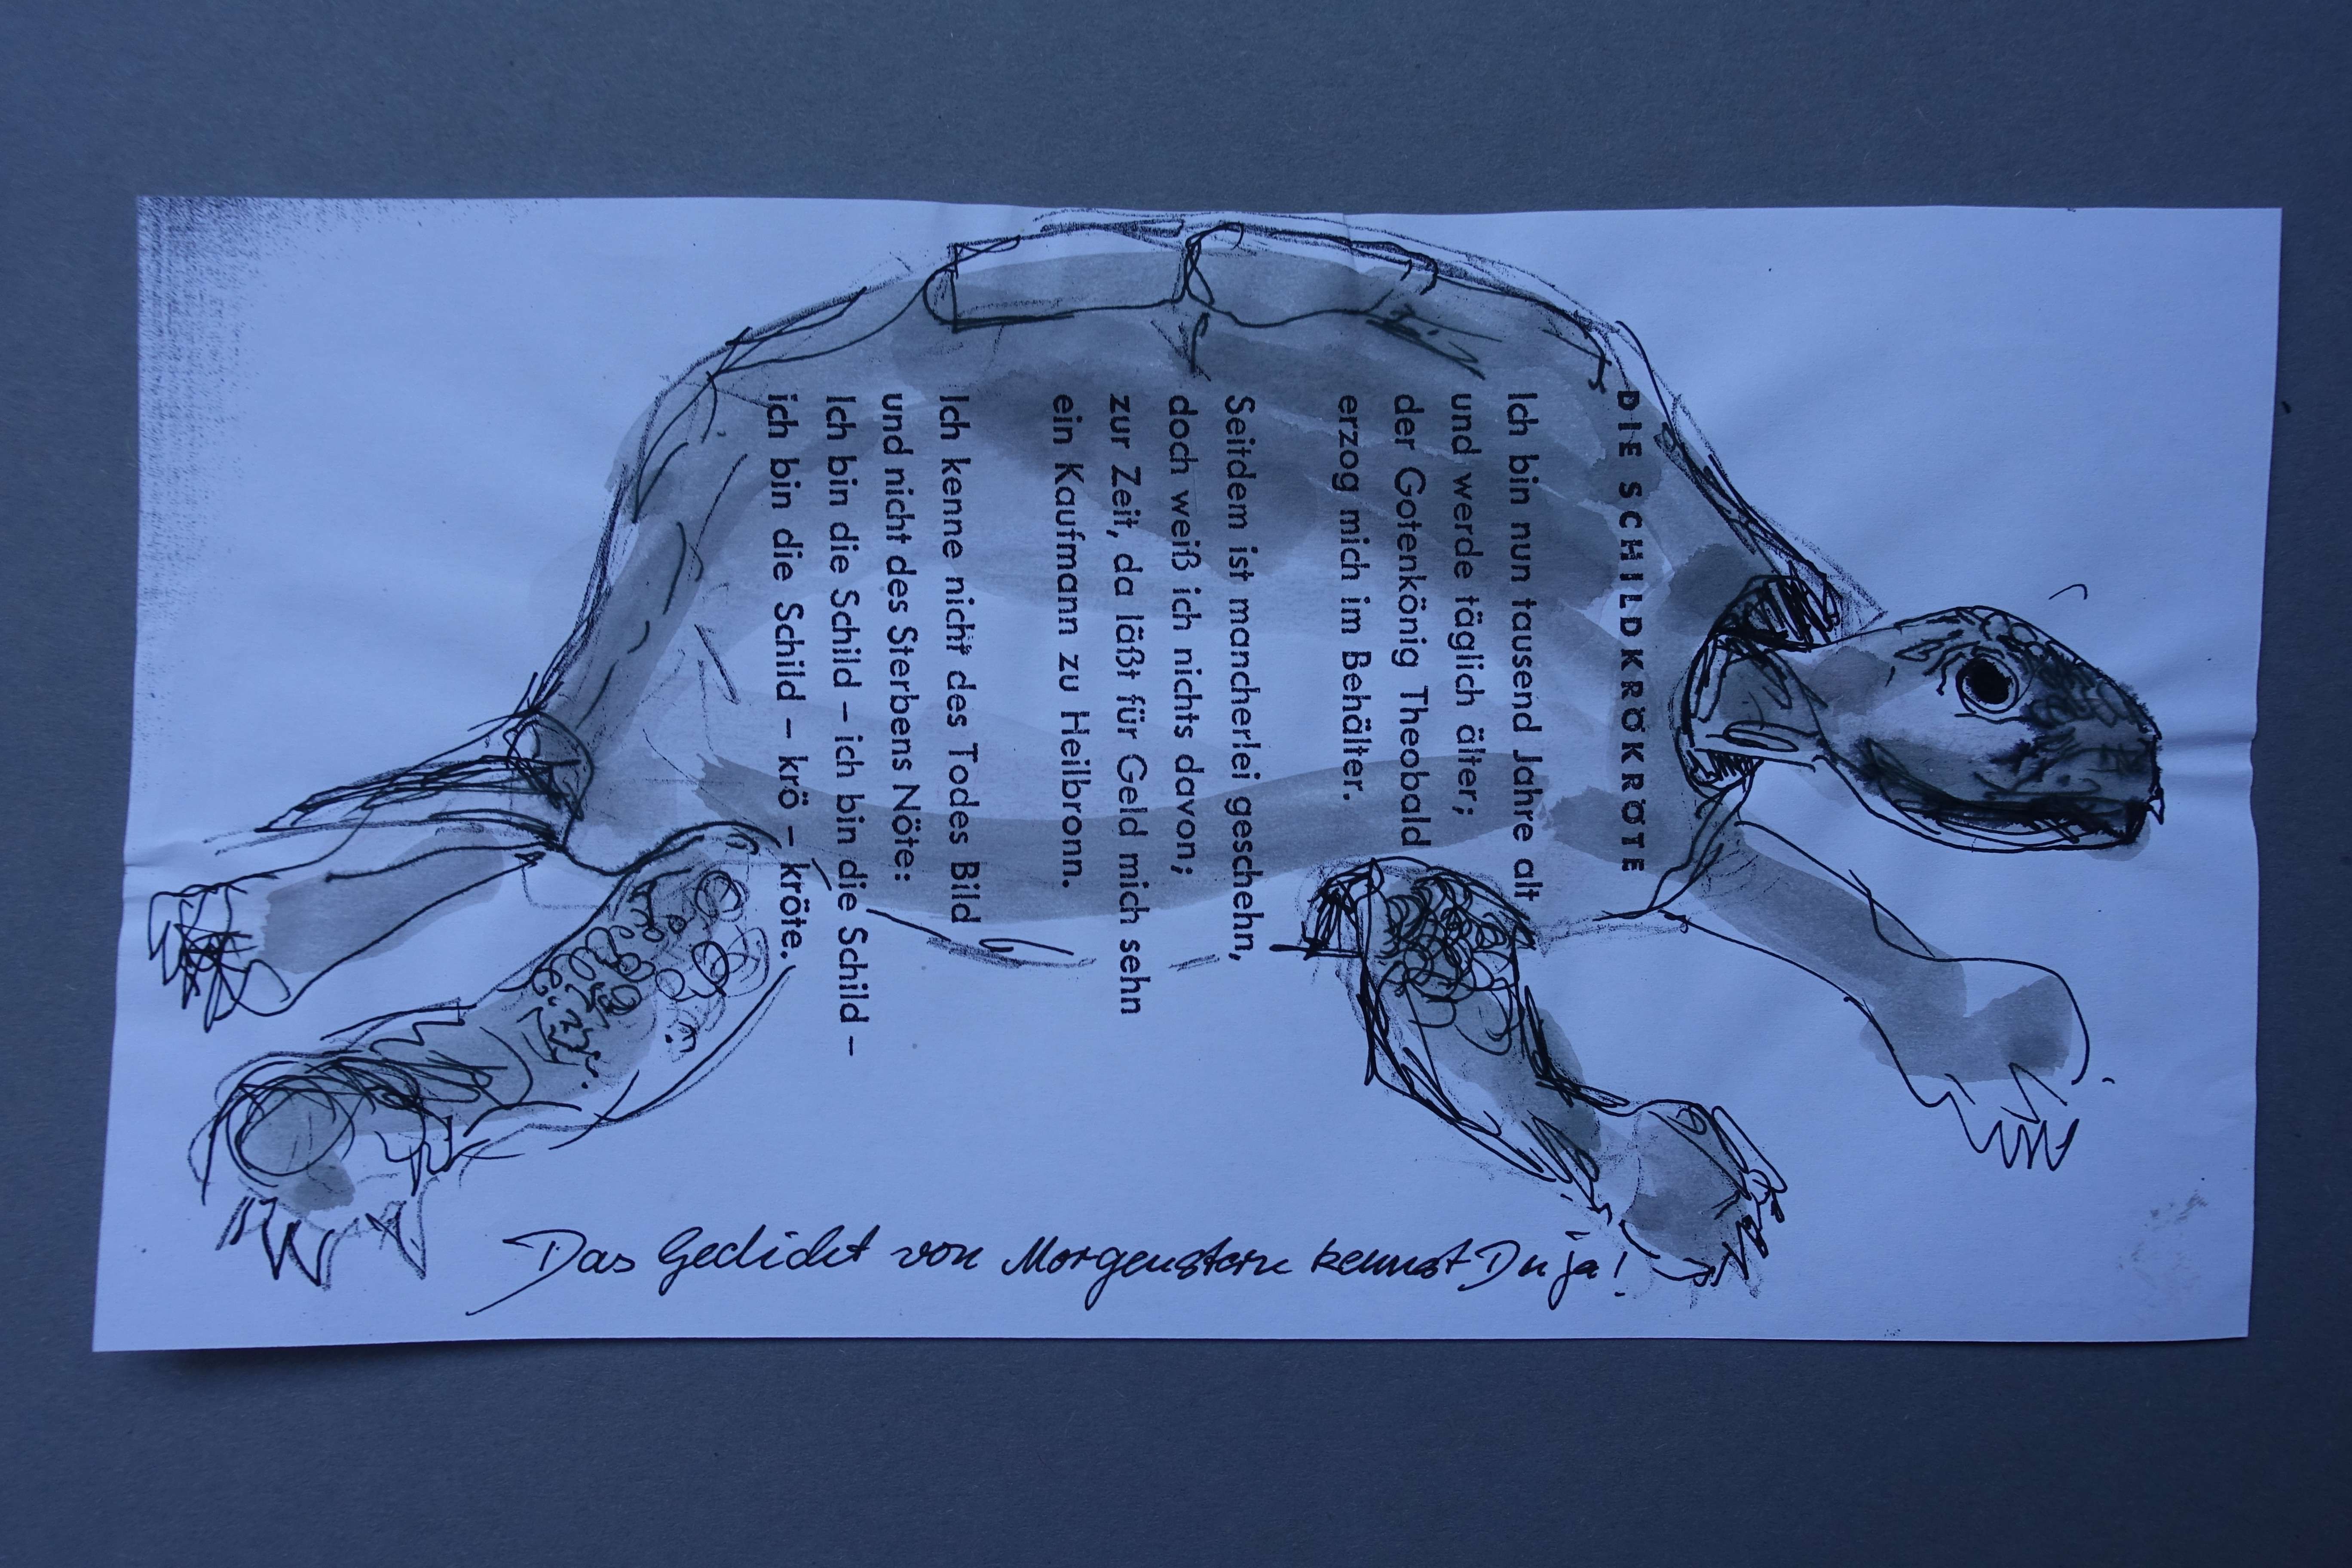 DIE SCHILDKRÖKRÖTE
Ich bin nun tausend Jahre alt
und werde täglich älter;
der Gotenkönig Theobald
erzog mich im Behälter.
Seitdem ist mancherlei geschehn,
doch weiß ich nichts davon;
zur Zeit, da läßt für Geld mich sehn
ein Kaufmann zu Heilbronn.
Ich kenne nicht des Todes Bild
und nicht des Sterbens Nöte:
Ich bin die Schild – ich bin die Schild –
ich bin die Schild – krö – kröte.
Das Gedicht von Morgenstern kennst Du ja!